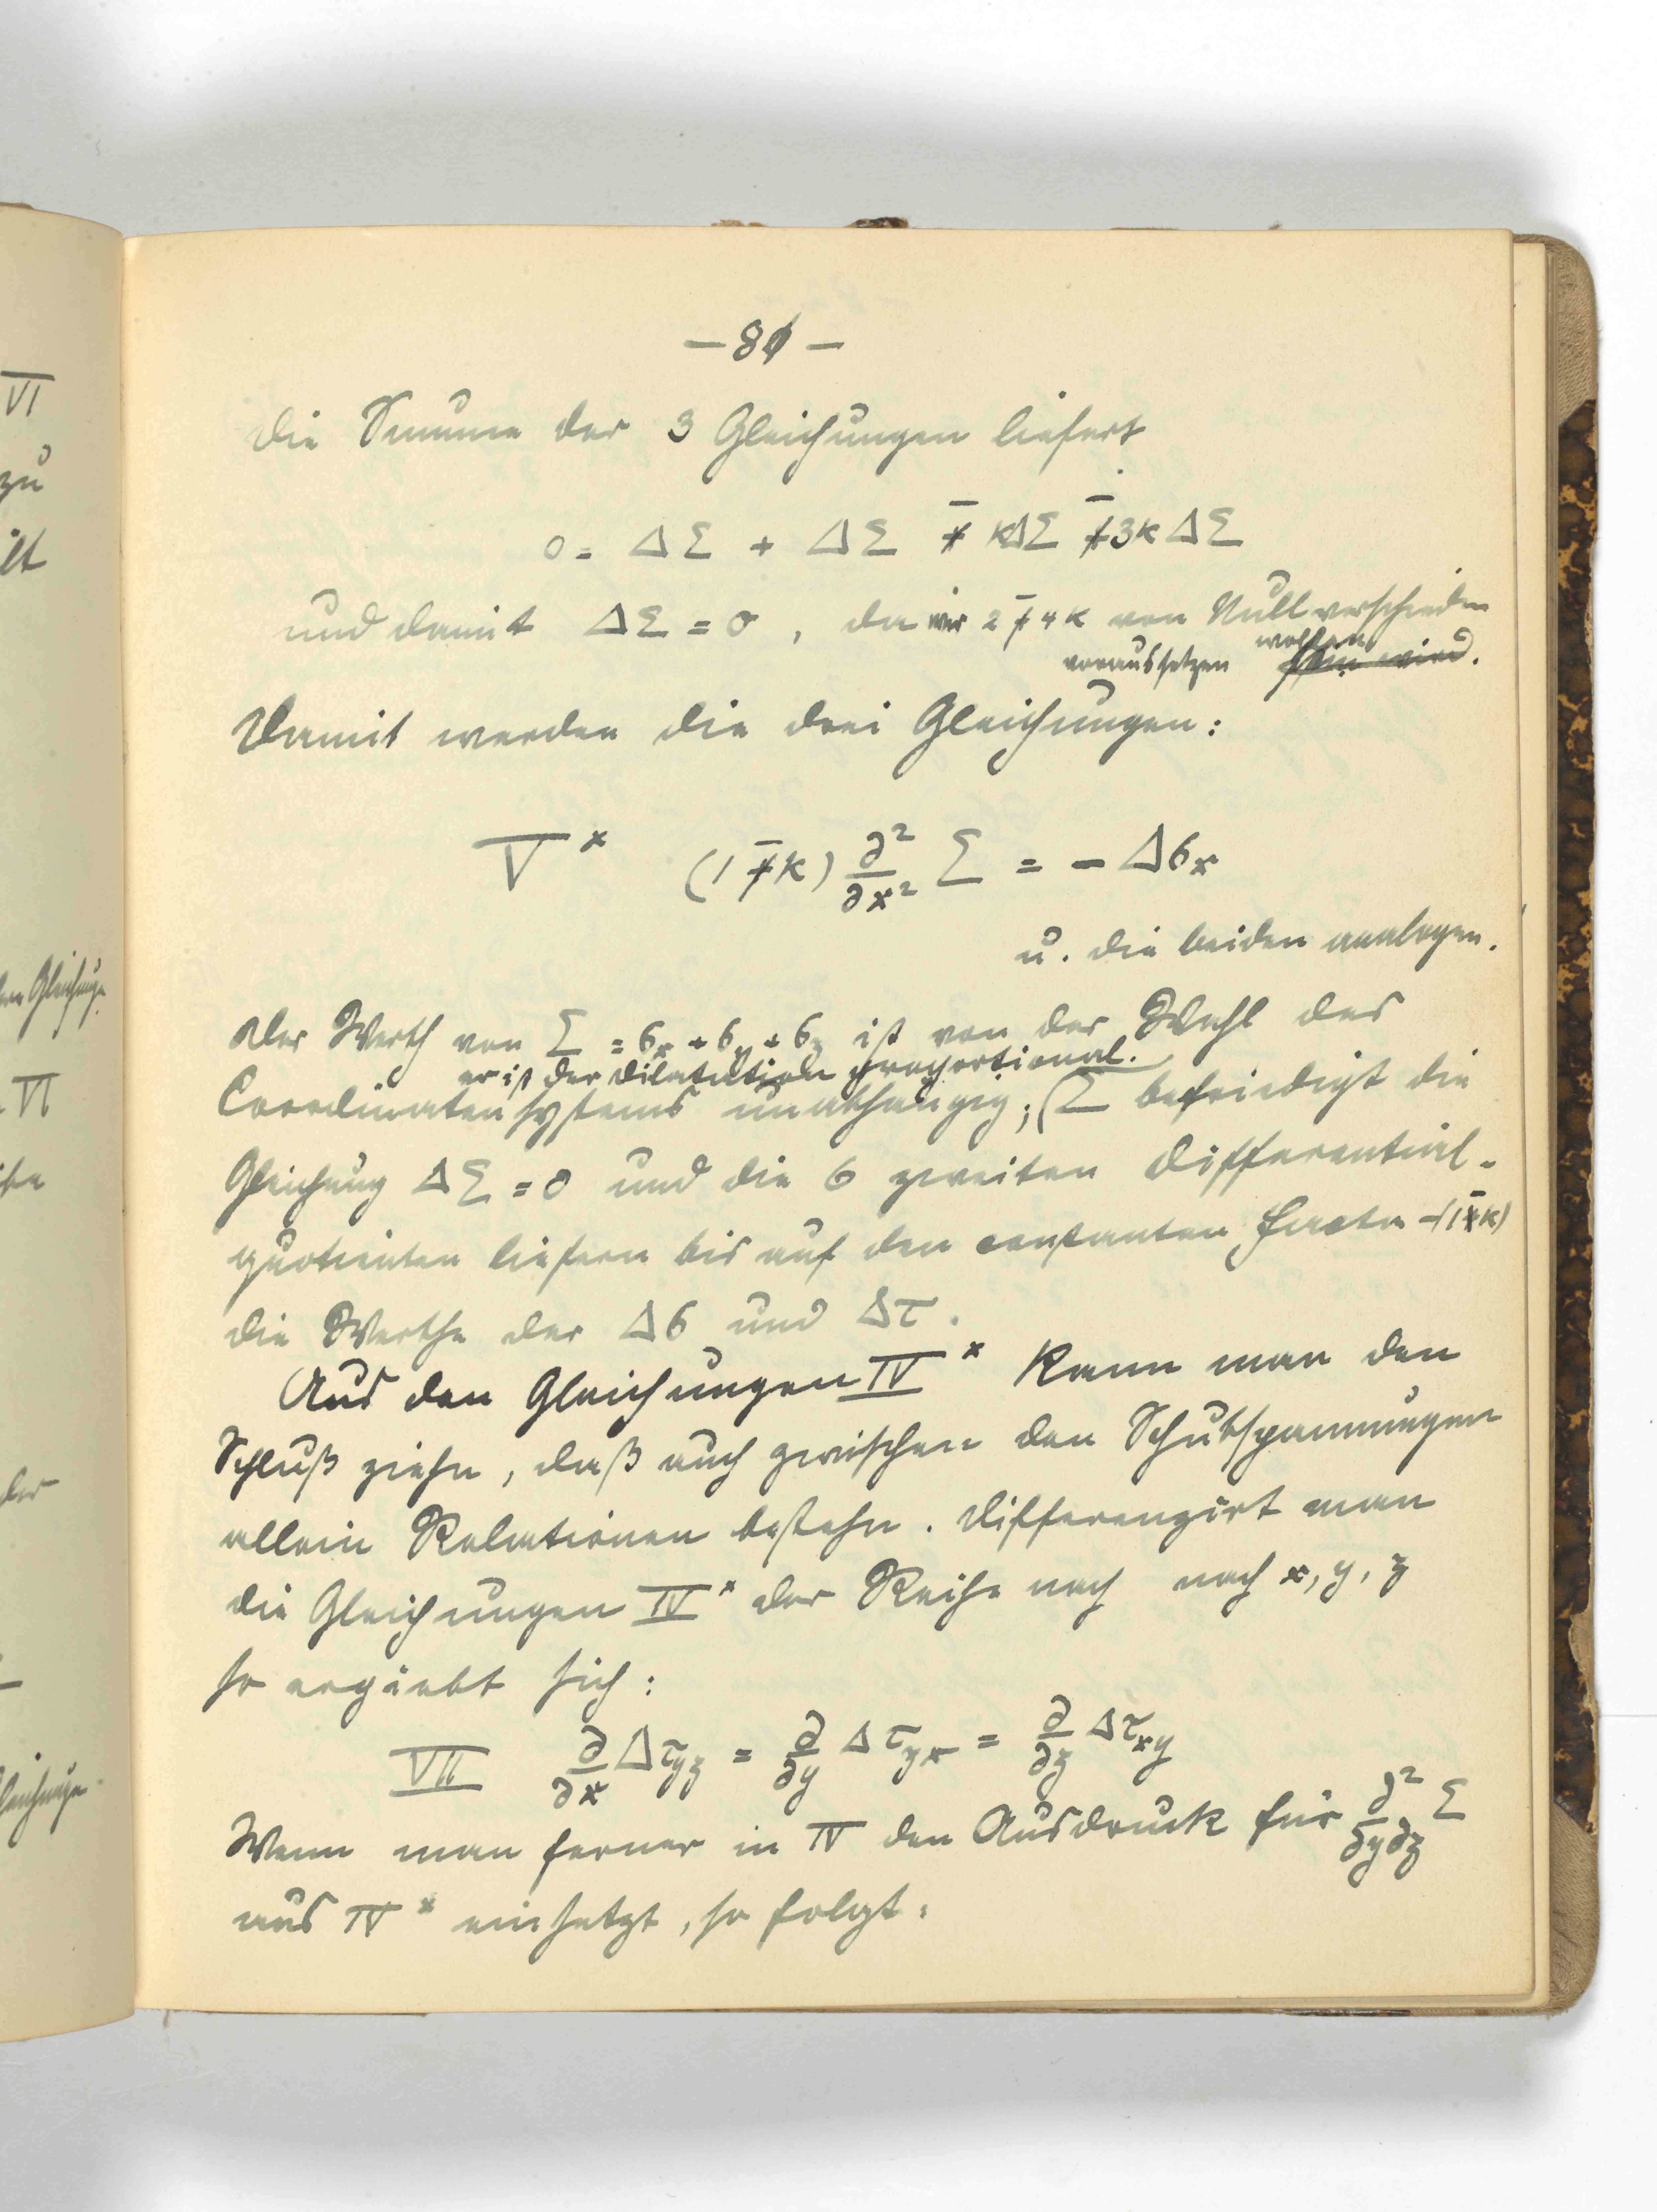 VI
zu
– 81 –
Die Summe der 3 Gleichungen liefert
0 = ΔΣ + ΔΣ – kΔΣ – 3kΔΣ
und damit ΔΣ = 0, da wir 2 – 4k von Null verschieden
voraussetzen wollen.
Damit werden die drei Gleichungen:
V* (1 – k) ∂²/∂x² Σ = – Δσx
u. die beiden analogen.
Der Werth von Σ = σx + σy + σz ist von der Wahl des
er ist der Dilatation proportional.
Coordinatensystems unabhängig; Σ befriedigt die
Gleichung ΔΣ = 0 und die 6 zweiten Differential-
quotienten liefern bis auf den constanten Factor –(1–k)
die Werthe der Δσ und Δτ.
Aus den Gleichungen IV* kann man den
Schluß ziehn, daß auch zwischen den Schubspannungen
allein Relationen bestehn. Differenzirt man
die Gleichungen IV* der Reihe nach nach x, y, z
so ergiebt sich:
VII ∂/∂x Δτyz = ∂/∂y Δτzx = ∂/∂z Δτxy
Wenn man ferner in IV den Ausdruck für ∂²/∂y∂z Σ
aus IV* einsetzt, so folgt: